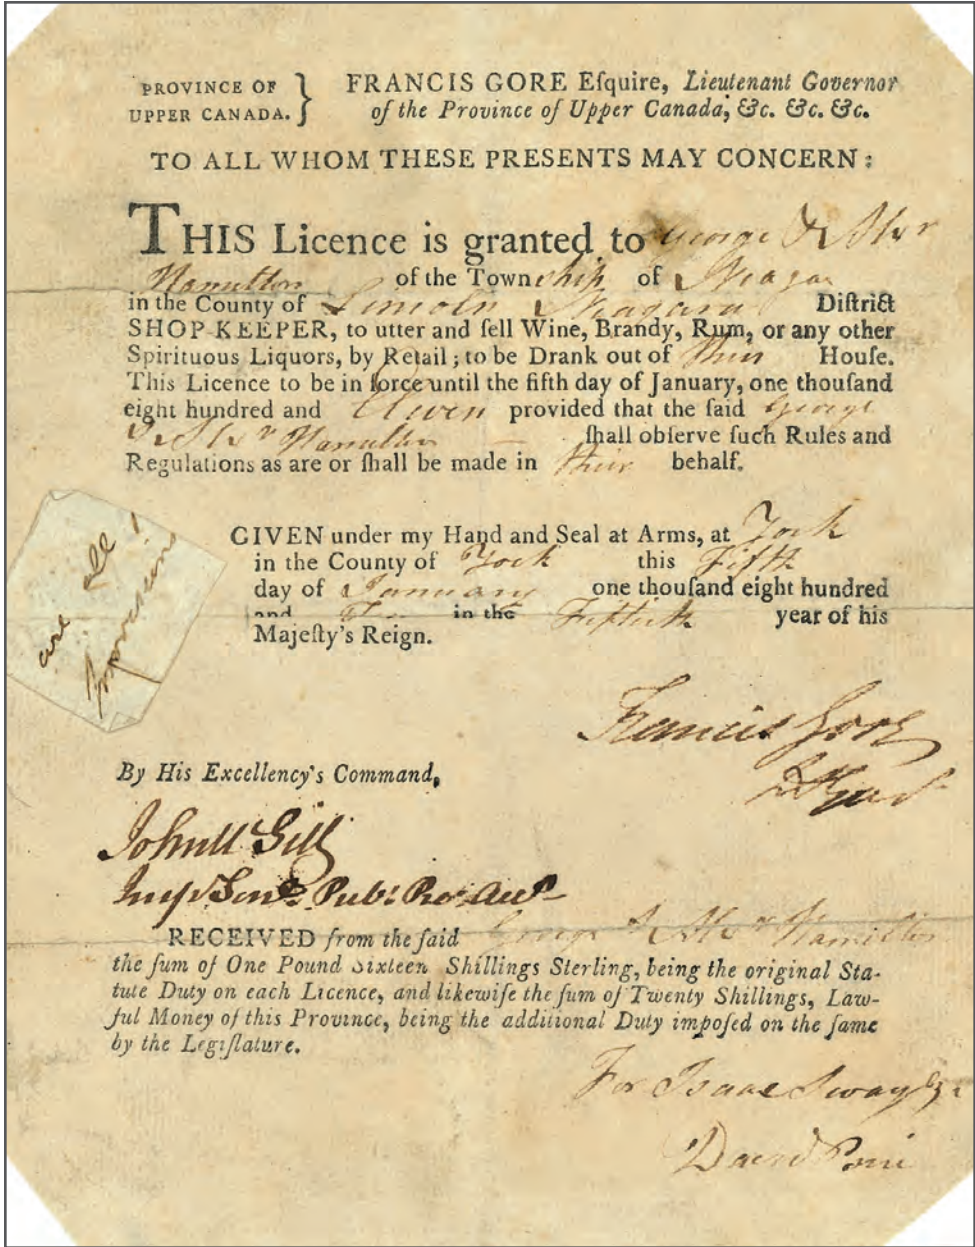 PROVINCE OF
UPPER CANADA.
FRANCIS GORE Eſquire, Lieutenant Governor
of the Province of Upper Canada, &c. &c. &c.
TO ALL WHOM THESE PRESENTS MAY CONCERN:
THIS Licence is granted to George & Alexr
Hamilton of the Township of Niagara
in the County of Lincoln Niagara Diſtrict
SHOP-KEEPER, to utter and ſell Wine, Brandy, Rum, or any other
Spirituous Liquors, by Retail; to be Drank out of their Houſe.
This Licence to be in force until the fifth day of January, one thouſand
eight hundred and Eleven provided that the ſaid George
& Alexr Hamilton — ſhall obſerve ſuch Rules and
Regulations as are or ſhall be made in their behalf.
GIVEN under my Hand and Seal at Arms, at York
in the County of York this Fifth
day of January one thouſand eight hundred
and Ten in the Fiftieth year of his
Majeſty's Reign.
are all!
Francis Gore
By His Excellency's Command,
RECEIVED from the ſaid George & Alexr Hamilton
the ſum of One Pound Sixteen Shillings Sterling, being the original Sta-
tute Duty on each Licence, and likewiſe the ſum of Twenty Shillings, Law-
ful Money of this Province, being the additional Duty impoſed on the ſame
by the Legiſlature.
For Isaac Swayze
David